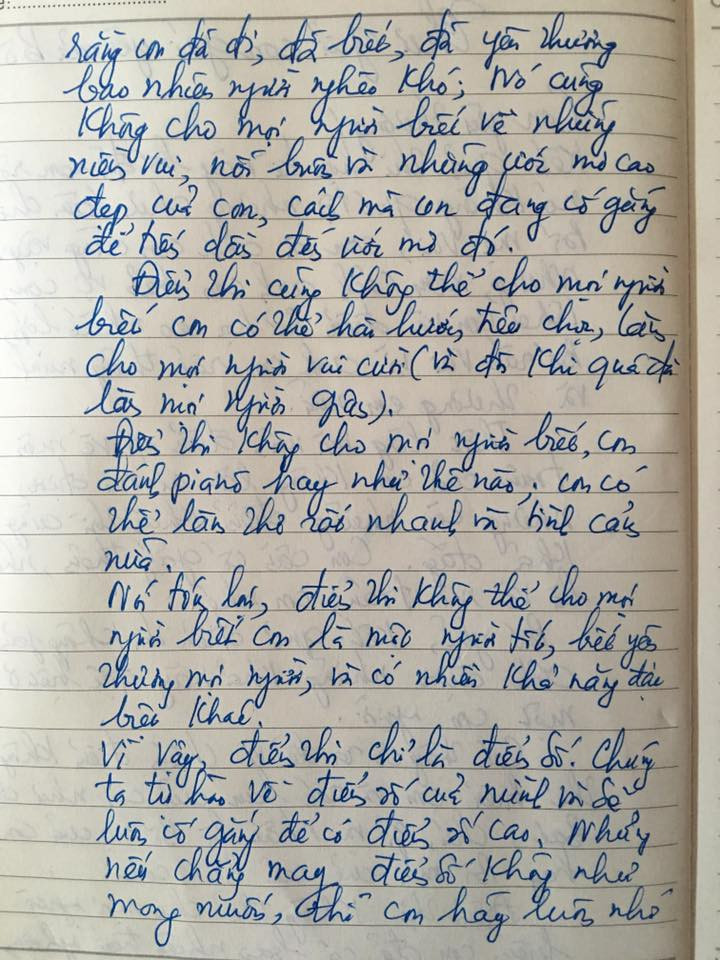 rằng con đã đi, đã biết, đã yêu thương
bao nhiêu người nghèo khó; Nó cũng
không cho mọi người biết về những
niềm vui, nỗi buồn và những ước mơ cao
đẹp của con, cách mà con đang cố gắng
để tiến dần đến ước mơ đó.
Điểm thi cũng không thể cho mọi người
biết con có thể hài hước, tếu chọc, làm
cho mọi người vui cười (và đôi khi quá đà
làm mọi người giận).
Điểm thi không cho mọi người biết, con
đánh piano hay như thế nào, con có
thể làm thơ rất nhanh và tình cảm
nữa.
Nói tóm lại, điểm thi không thể cho mọi
người biết con là một người tốt, biết yêu
thương mọi người, và có nhiều khả năng đặc
biệt khác.
Vì vậy, điểm thi chỉ là điểm số. Chúng
ta tự hào về điểm số của mình và sẽ
luôn cố gắng để có điểm số cao. Nhưng
nếu chẳng may điểm số không như
mong muốn, thì con hãy luôn nhớ